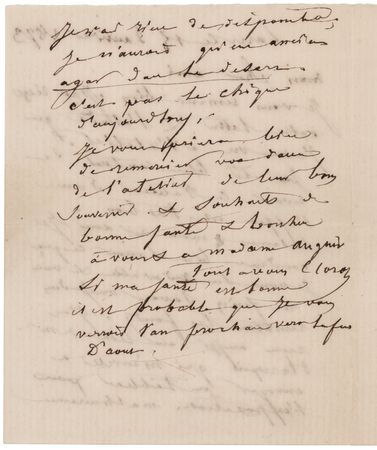 Je n'ai rien de disponible,
je n'aurais qu'un ancien
agar dans le désert
c'est pas le chique
d'aujourdhuy,
Je vous prierai bien
de remercier vos dames
de l'atelier de leur bon
souvenir. & souhaits de
bonne santé & bonheur
à vous & a madame
Tout a vous C. Corot
Si ma santé est bonne
il est probable que je vous
verrai l'an prochain vers la fin
D'aout.